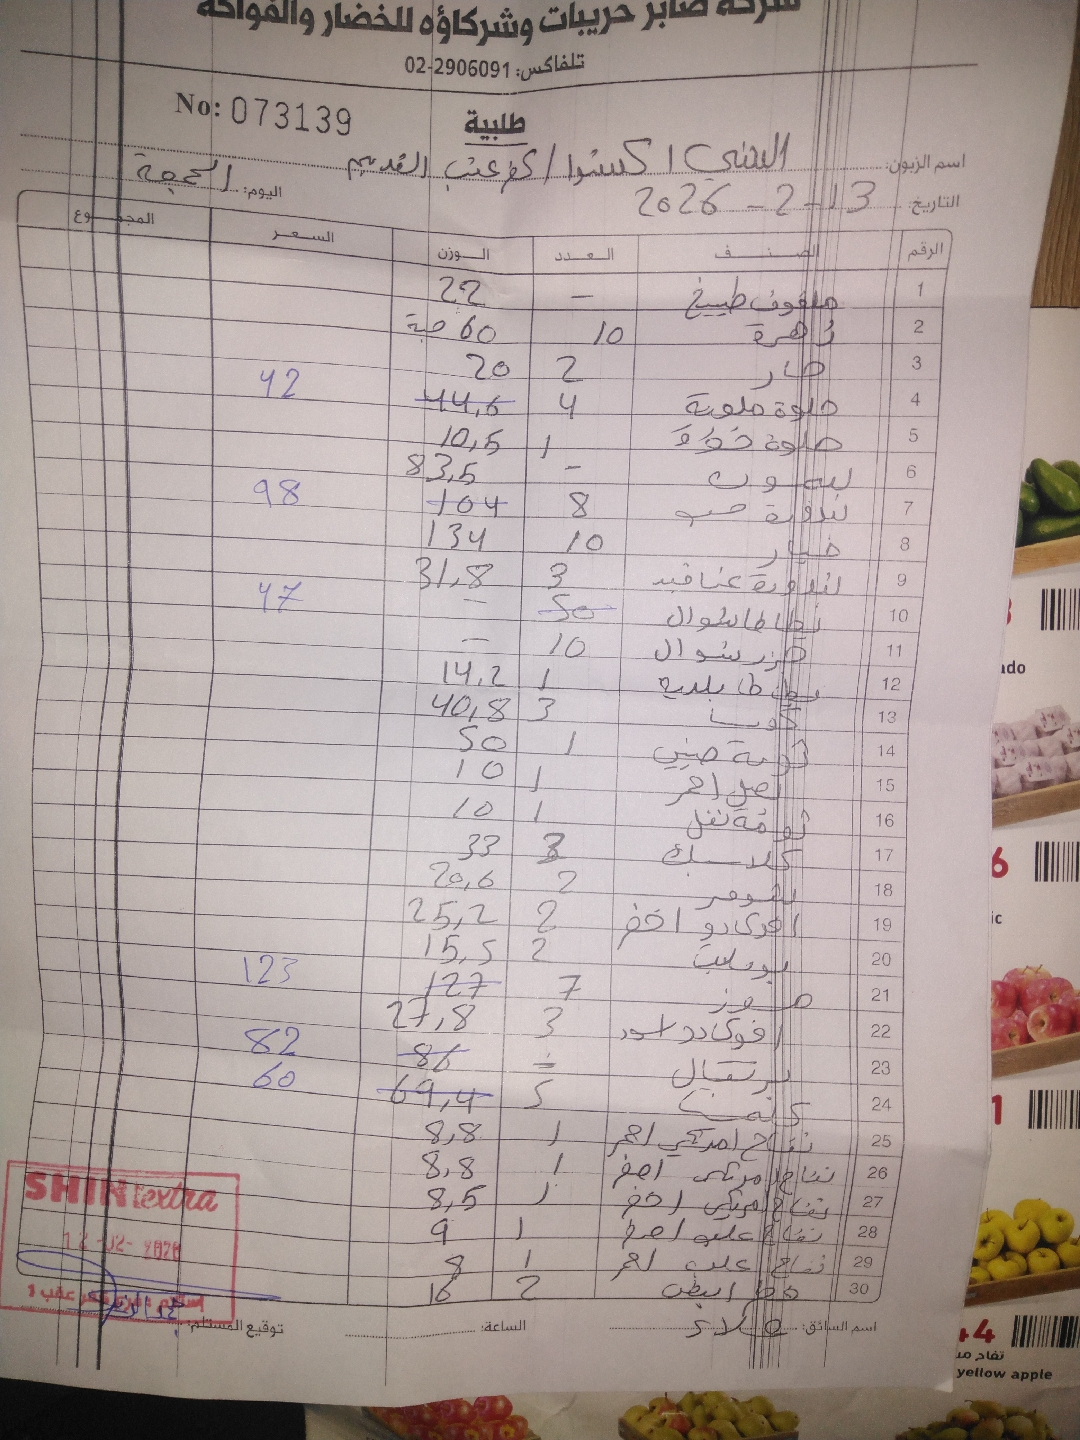 شركة صابر حريبات وشركاؤه للخضار والفواكه
تلفاكس: 02-2906091
No: 073139
طلبية
اسم الزبون: / كفر عقب القديم
اليوم: الجمعة
التاريخ: 13-2-2026
الرقم الصنف العدد الوزن السعر المجموع
1 ملفوف طبيخ – 22
2 زهرة 10 60 حبة
3 حار 2 20
4 حلوة ملونة 4 44,6 42
5 حلوة 1 10,5
6 ليمون – 83,5
7 بندورة 8 104 98
8 خيار 10 134
9 بندورة عناقيد 3 31,8
10 بطاطا شوال 50 – 47
11 جزر شوال 10 –
12 بطاطا بلدية 1 14,2
13 كوسا 3 40,8
14 ثومة صيني 1 50
15 بصل احمر 1 10
16 ثومة 1 10
17 3 33
18 2 20,6
19 افوكادو اخضر 2 25,2
20 2 15,5
21 موز 7 127 123
22 افوكادو اسود 3 27,8
23 برتقال – 86 82
24 5 69,4 60
25 تفاح امريكي احمر 1 8,8
26 تفاح امريكي اصفر 1 8,8
27 تفاح امريكي اخضر 1 8,5
28 تفاح 1 9
29 تفاح احمر 1 8
30 ابيض 2 16
اسم السائق: علاء الساعة: توقيع المستلم:
SHINI extra
12-02-2026
ado
6
ic
1
44
تفاح
yellow apple